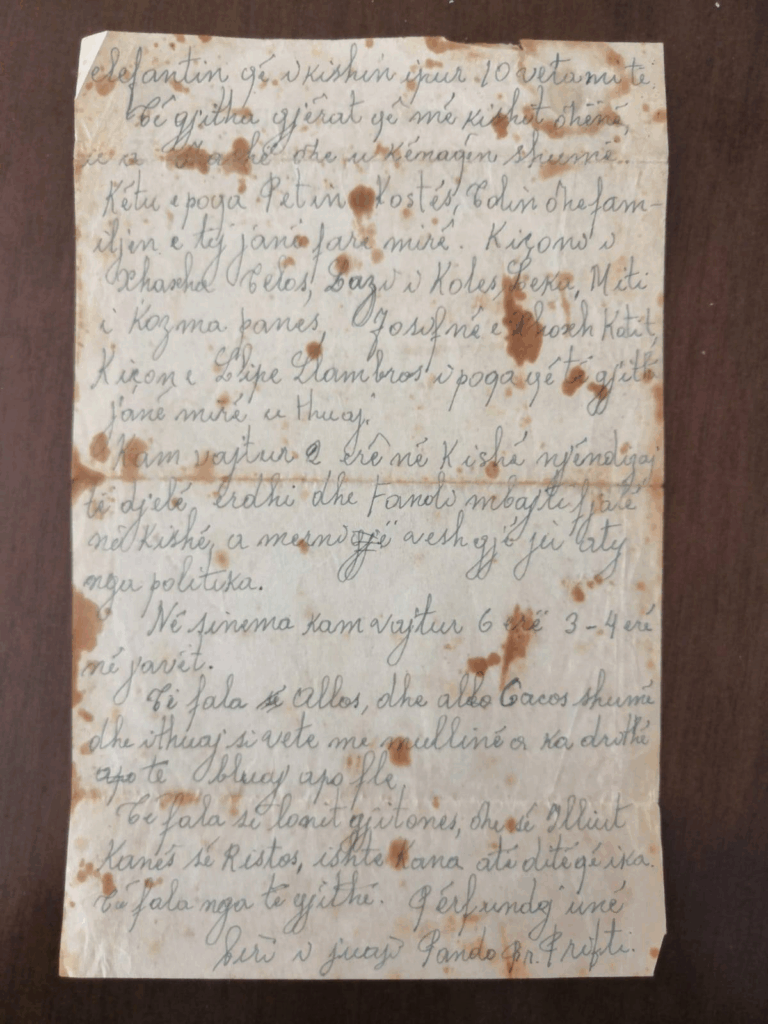 elefantin qé i kishin ipur 10 veta mi té.
Té gjitha gjérat qé mé kishit dhéné,
u a dhashé dhe u kénaqén shumé.
Kétu epoqa Petin e Kostés, Colin dhe fam-
iljen e tij jané fare miré. Kiçoni i
Xhaxha Celos, Lazi i Koles, Leka, Miti
i Kozma panes, Josifné e Xhoxh Kotit,
Kiçon e Lipe Llambros i poqa qé ti gjith
jané miré u thuaj.
Kam vajtur 2 eré né Kishé njéndyaj
té djelé erdhi dhe Fandi mbajti fjalé
né Kishé, a mesni gjë vesh gjé ju aty
nga politika.
Né sinema kam vajtur 6 erë 3-4 eré
né javét.
Té fala sé Allos, dhe allo Cacos shumé
dhe i thuaj si vete me mulliné a ka drithé
apo té bluaj apo flé,
Té fala sé lonit gjitones, dhe sé Illiut
Kanés sé Ristos, ishte Kana até dité qé ika.
Té fala nga té gjithé. Pérfundoj uné
biri i juaj Pando Br. Prifti.